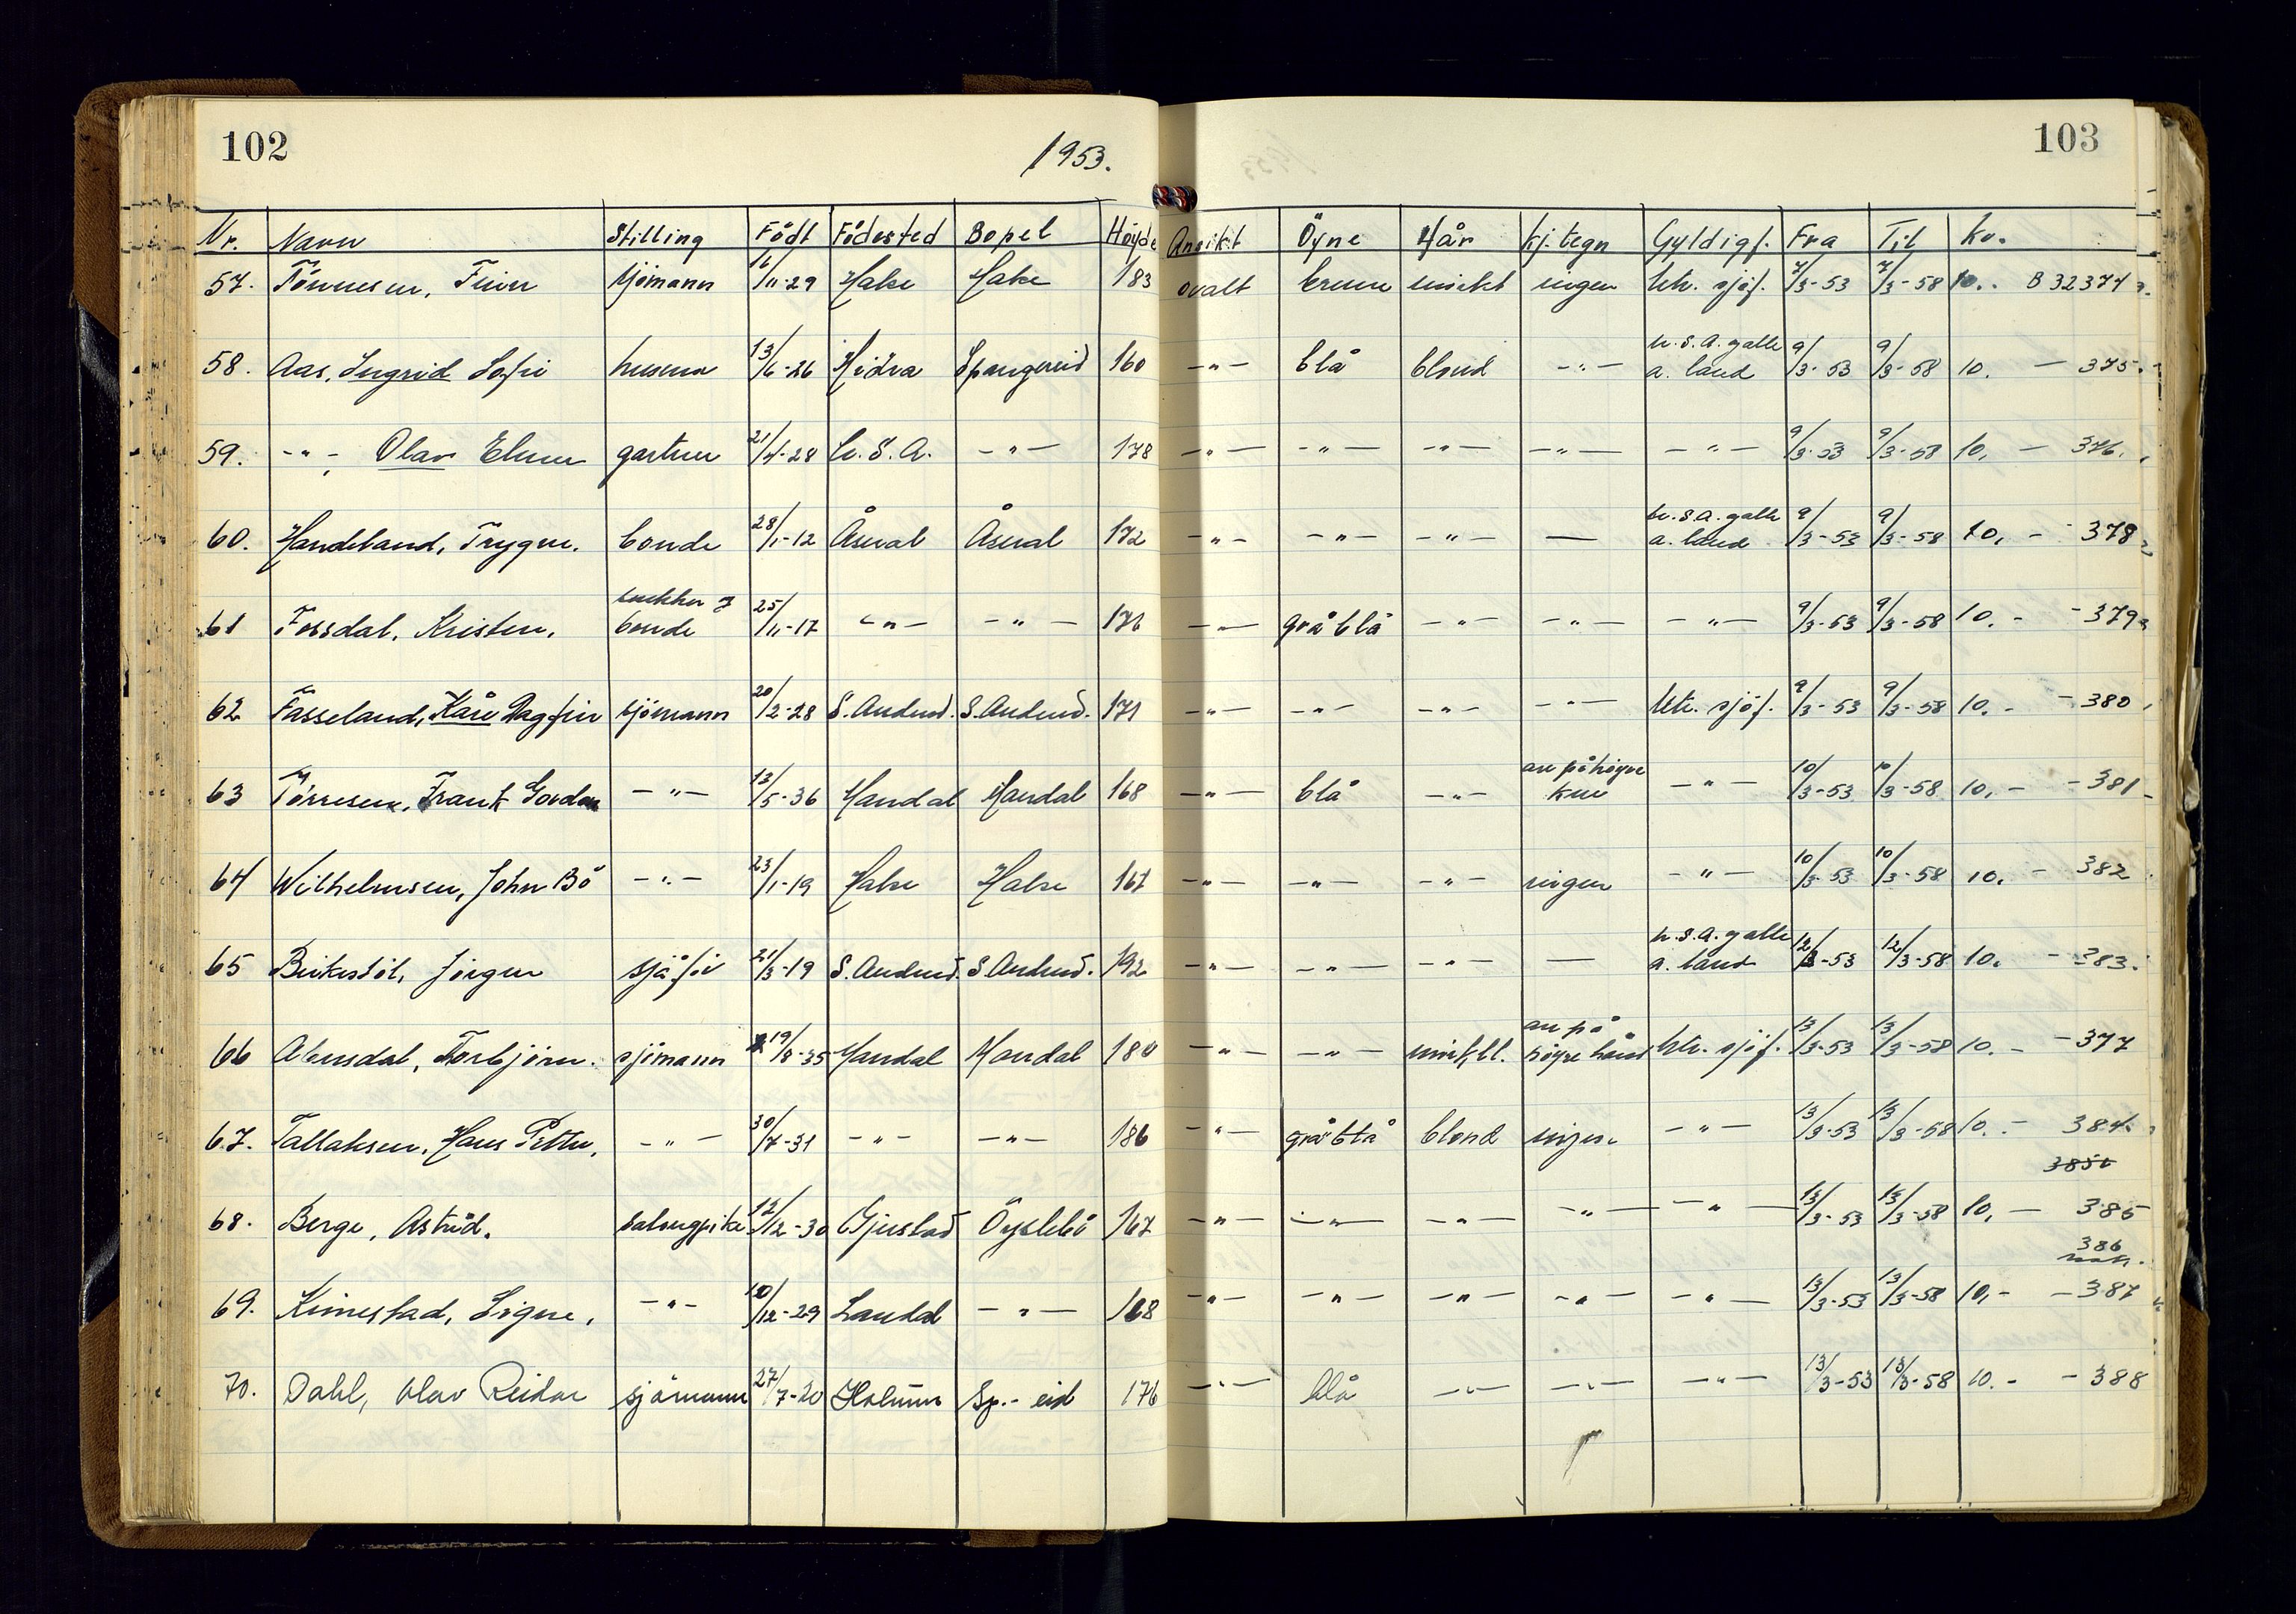 102
1953.
103
Nr. Navn Stilling Född Födested Bopel Höyde Ansikt Öyne Hår kj.tegn Gyldigf. Fra Til Kr.
57. Tönnesen, Finn sjömann 16/11-29 Halse Halse 183 ovalt brune mörkt ingen utr. sjöf. 7/3-53 7/3-58 10.. B 32374
58. Aas, Ingrid Sofie husmor 13/6-26 Hidra Spangereid 160 -"- blå blond -"- U.S.A. g alle a. land 9/3-53 9/3-58 10. - 375.
59. -"-, Olav Elmer gartner 21/4-28 U.S.A. -"- 178 -"- -"- -"- -"- -"- 9/3-53 9/3-58 10, - 376.
60. Handeland, Trygve. bonde 28/1-12 Åseral Åseral 172 -"- -"- -"- — U.S.A. g alle a. land 9/3-53 9/3-58 10, - 378
61 Fossdal, Kristen, snekker & bonde 25/11-17 -"- -"- 176 -"- gråblå -"- -"- -"- 9/3-53 9/3-58 10. - 379
62 Fasseland, Kåre Dagfinn sjömann 20/2-28 S.Audned. S.Audned. 171 -"- -"- -"- -"- utr. sjöf. 9/3-53 9/3-58 10. - 380
63 Törresen, Frank Gordon -"- 13/5-36 Mandal Mandal 168 -"- blå -"- arr på höyre kne -"- 10/3-53 10/3-58 10, - 381
64 Wilhelmsen, John Bö -"- 23/1-19 Halse Halse 167 -"- -"- -"- ingen -"- 10/3-53 10/3-58 10. - 382
65 Birkestöl, Jörgen sjåför 21/3-19 S.Audned. S.Audned. 192 -"- -"- -"- — U.S.A. g alle a. land 12/3-53 12/3-58 10. - 383.
66 Abusdal, Torbjörn. sjömann 19/8-35 Mandal Mandal 180 -"- -"- mörkbl. arr på höyre hånd utr. sjöf. 13/3-53 13/3-58 10. - 377
67. Tallaksen, Hans Petter, -"- 30/7-31 -"- -"- 186 -"- gråblå blond ingen -"- 13/3-53 13/3-58 10. - 384.
3850
68. Berge, Astrid. salongpike 12/12-30 Gjerstad Öyslebö 167 -"- -"- -"- -"- -"- 13/3-53 13/3-58 10, - 385
386
mak.
69. Kimestad, Signe, -"- 10/12-29 Laudal -"- 168 -"- -"- -"- -"- -"- 13/3-53 13/3-58 10, - 387
70. Dahl, Olav Reidar sjömann 27/7-20 Holum Sp.-eid 176 -"- blå -"- -"- -"- 13/3-53 13/3-58 10. - 388